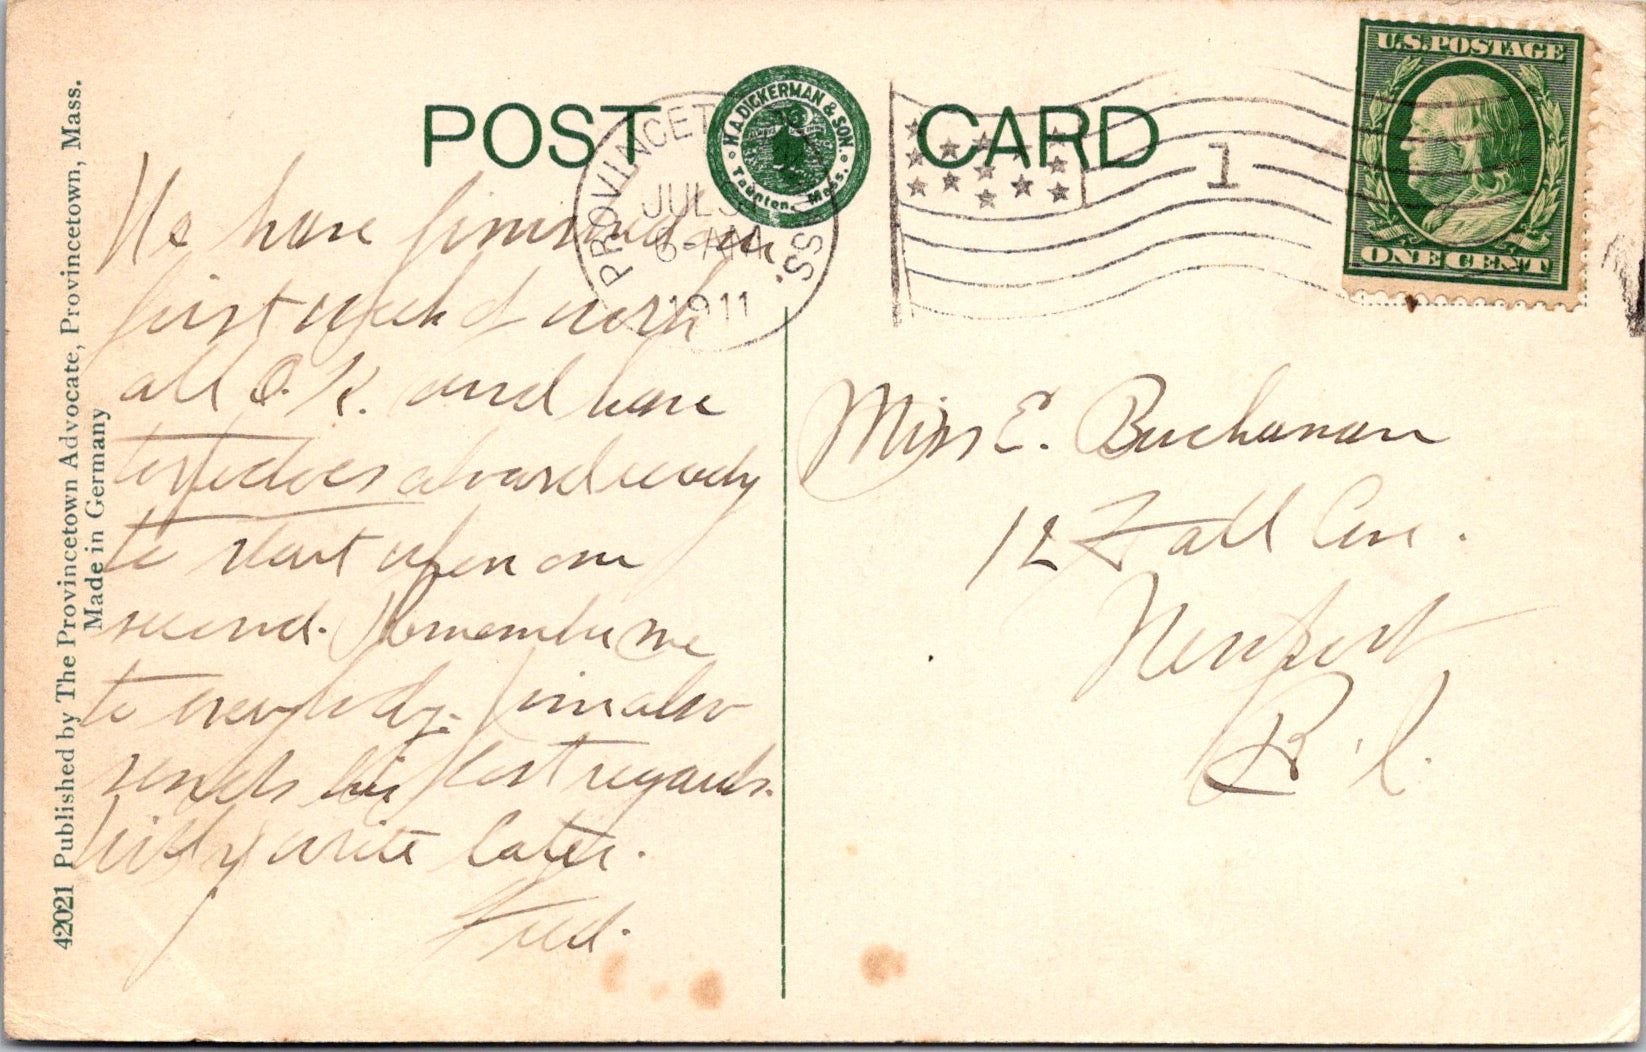 POST CARD
H. A. DICKERMAN & SON.
Taunton, Mass.
PROVINCET
MASS.
JUL
6-AM
1911
1
U.S. POSTAGE
ONE CENT
42021 Published by The Provincetown Advocate, Provincetown, Mass.
Made in Germany
We have finished our
first week of work
all O.K. and have
torpedoes aboard ready
to start upon our
second. Remember me
to everybody. Jim also
sends his best regards.
Will write later.
Fred.
Miss E. Buchanan
12 Hall Ave.
Newport
R.I.